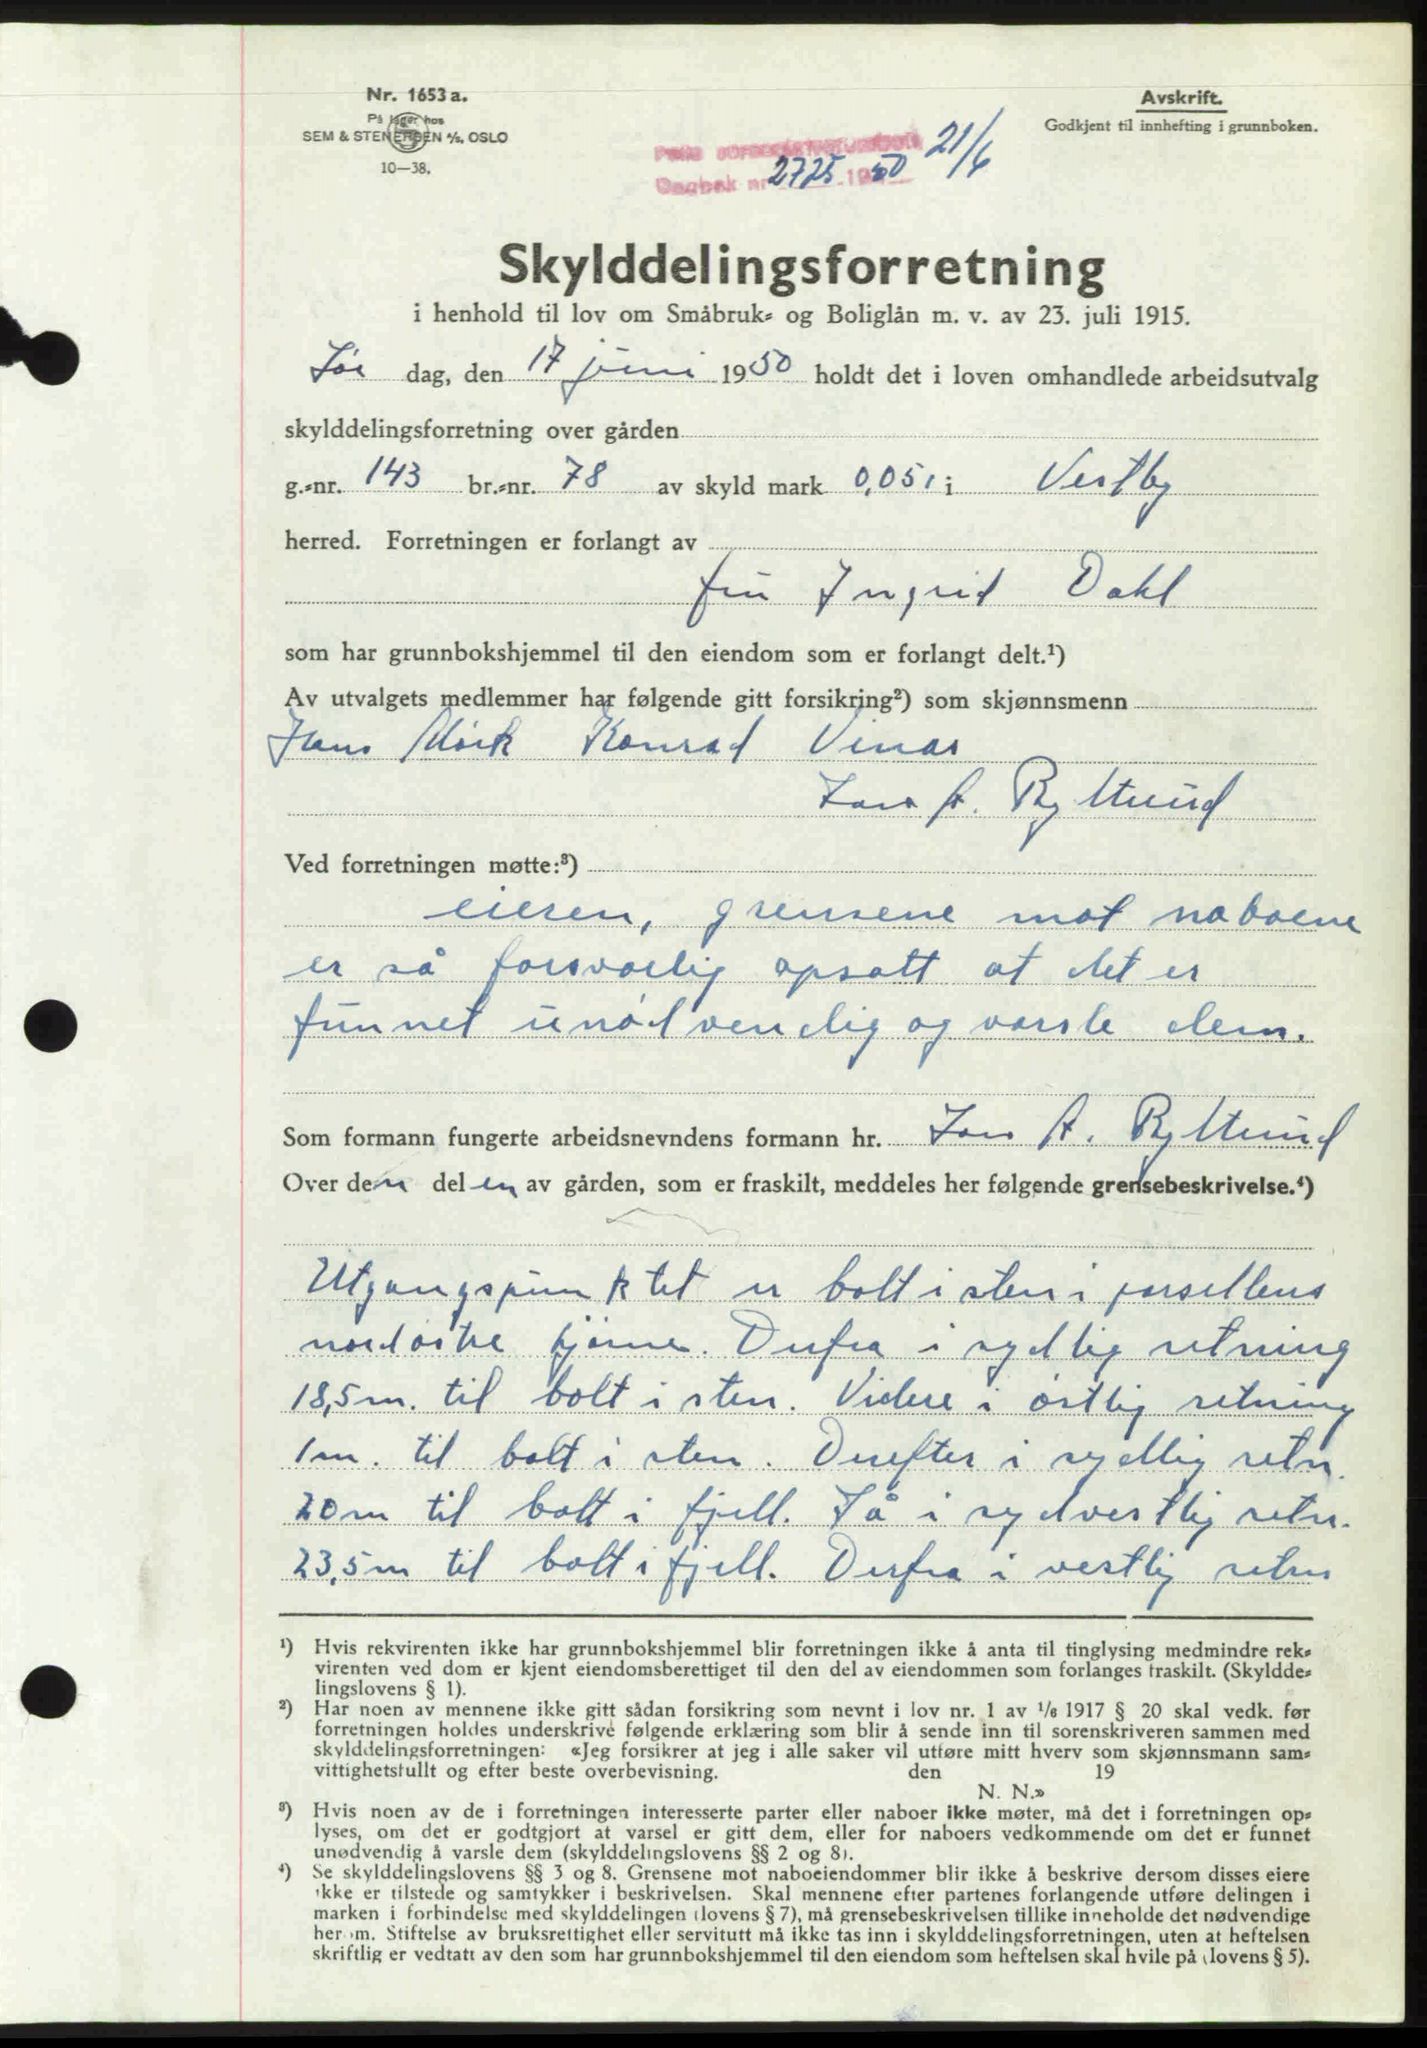 Nr. 1653 a.
På lager hos
SEM & STENERSEN A/S, OSLO
10—38.
Avskrift.
Godkjent til innhefting i grunnboken.
Dagbok nr. 2725 1950 21/6
Skylddelingsforretning
i henhold til lov om Småbruk- og Boliglån m. v. av 23. juli 1915.
Lør dag, den 17 juni 1950 holdt det i loven omhandlede arbeidsutvalg
skylddelingsforretning over gården
g.-nr. 143 br.-nr. 78 av skyld mark 0,05, i Vestby
herred. Forretningen er forlangt av
fru Ingrid Dahl
som har grunnbokshjemmel til den eiendom som er forlangt delt.¹)
Av utvalgets medlemmer har følgende gitt forsikring²) som skjønnsmenn
Hans Mørk Konrad
Lars A.
Ved forretningen møtte:³)
eieren, grensene mot naboene
er så forsvarlig opsatt at det er
funnet unødvendig og varsle dem.
Som formann fungerte arbeidsnevndens formann hr. Lars A.
Over den delen av gården, som er fraskilt, meddeles her følgende grensebeskrivelse.⁴)
Utgangspunktet er bolt i sten i parsellens
nordøstre hjørne. Derfra i sydlig retning
18,5m. til bolt i sten. Videre i østlig retning
1m. til bolt i sten. Derefter i sydlig retn.
20m til bolt i fjell. Så i sydvestlig retn.
23,5m til bolt i fjell. Derfra i vestlig retn
¹) Hvis rekvirenten ikke har grunnbokshjemmel blir forretningen ikke å anta til tinglysing medmindre rek-
virenten ved dom er kjent eiendomsberettiget til den del av eiendommen som forlanges fraskilt. (Skyldde-
lingslovens § 1).
²) Har noen av mennene ikke gitt sådan forsikring som nevnt i lov nr. 1 av 1/6 1917 § 20 skal vedk. før
forretningen holdes underskrive følgende erklæring som blir å sende inn til sorenskriveren sammen med
skylddelingsforretningen: «Jeg forsikrer at jeg i alle saker vil utføre mitt hverv som skjønnsmann sam-
vittighetsfullt og efter beste overbevisning. den 19
N. N.»
³) Hvis noen av de i forretningen interesserte parter eller naboer ikke møter, må det i forretningen op-
lyses, om det er godtgjort at varsel er gitt dem, eller for naboers vedkommende om det er funnet
unødvendig å varsle dem (skylddelingslovens §§ 2 og 8).
⁴) Se skylddelingslovens §§ 3 og 8. Grensene mot naboeiendommer blir ikke å beskrive dersom disses eiere
ikke er tilstede og samtykker i beskrivelsen. Skal mennene efter partenes forlangende utføre delingen i
marken i forbindelse med skylddelingen (lovens § 7), må grensebeskrivelsen tillike inneholde det nødvendige
her om. Stiftelse av bruksrettighet eller servitutt må ikke tas inn i skylddelingsforretningen, uten at heftelsen
skriftlig er vedtatt av den som har grunnbokshjemmel til den eiendom som heftelsen skal hvile på (lovens § 5).